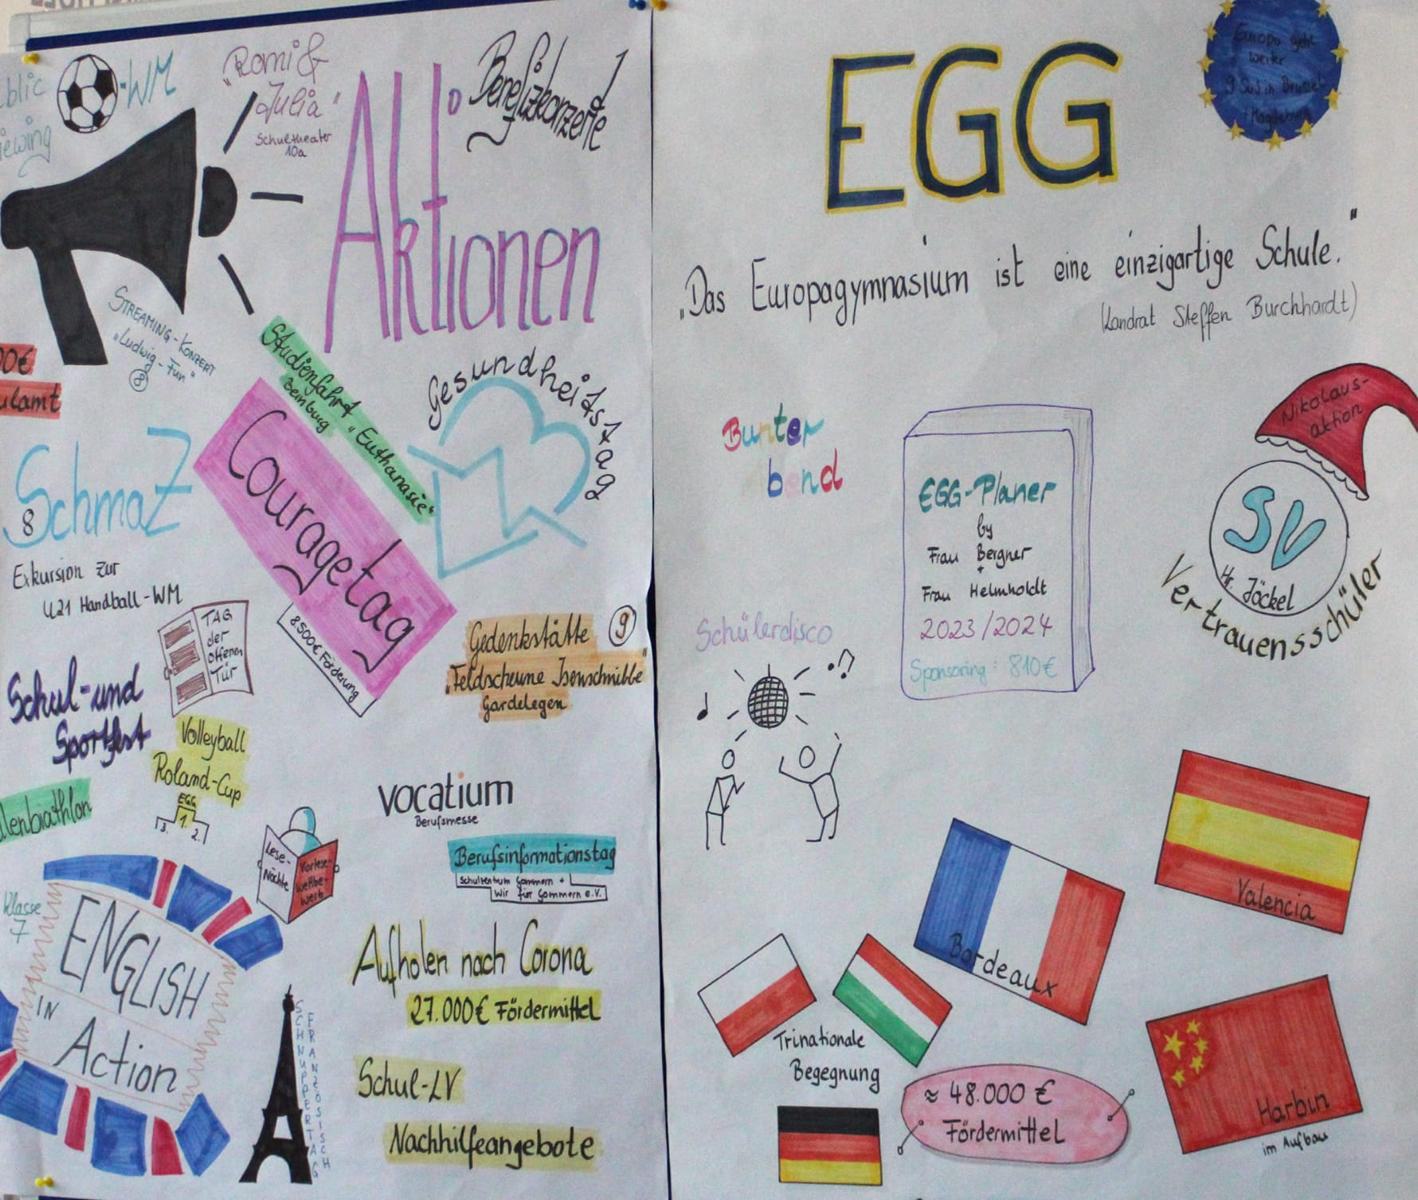 -WM
"Romi &
Julia"
Schultheater
10a
Benefizkonzerte
Aktionen
STREAMING-KONZERT
"Ludwig-Fun"
8
Studienfahrt "Euthanasie"
Bernburg
Gesundheitstag
Couragetag
8500€ Förderung
SchmaZ
8
Exkursion zur
U21 Handball-WM
TAG
der
offenen
Tür
Schul-und
Sportfest
Gedenkstätte 9
"Feldscheune Isenschnibbe"
Gardelegen
Volleyball
Roland-Cup
EGG
1.
3.
2.
Lese-
Nächte
Vorlese-
wettbe-
werb
vocatium
Berufsmesse
Berufsinformationstag
Schulzentrum Gommern +
Wir für Gommern e.V.
Klasse
7
ENGLISH
IN
Action
Aufholen nach Corona
27.000€ Fördermittel
SCHNUPPERTAG
FRANZÖSISCH
Schul-LV
Nachhilfeangebote
EGG
Europa geht
weiter
"Das Europagymnasium ist eine einzigartige Schule."
(Landrat Steffen Burchhardt)
Bunter
bend
EGG-Planer
by
Frau Bergner
+
Frau Helmholdt
2023/2024
Sponsoring: 810€
Nikolaus-
aktion
SV
Hr. Jöckel
Vertrauensschüler
Schülerdisco
Valencia
Bordeaux
Trinationale
Begegnung
≈ 48.000 €
Fördermittel
Harbin
im Aufbau